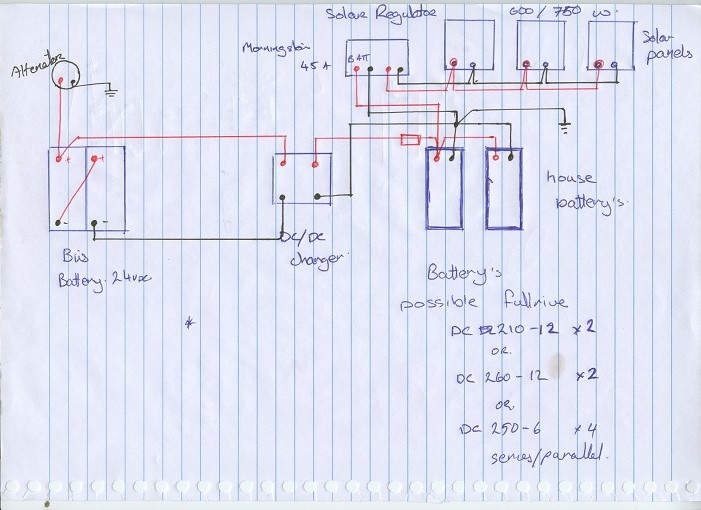 Solar Regulator
600/750 w.
Solar
panels
Morningstar
45 A
BATT
Alternator
+
+
-
-
Bus
Battery. 24vdc
DC/DC
charger
house
battery's.
Battery's
possible fullriver
DC 210-12 x2
OR.
DC 260-12 x2
OR.
DC 250-6 x4
series/parallel.
*